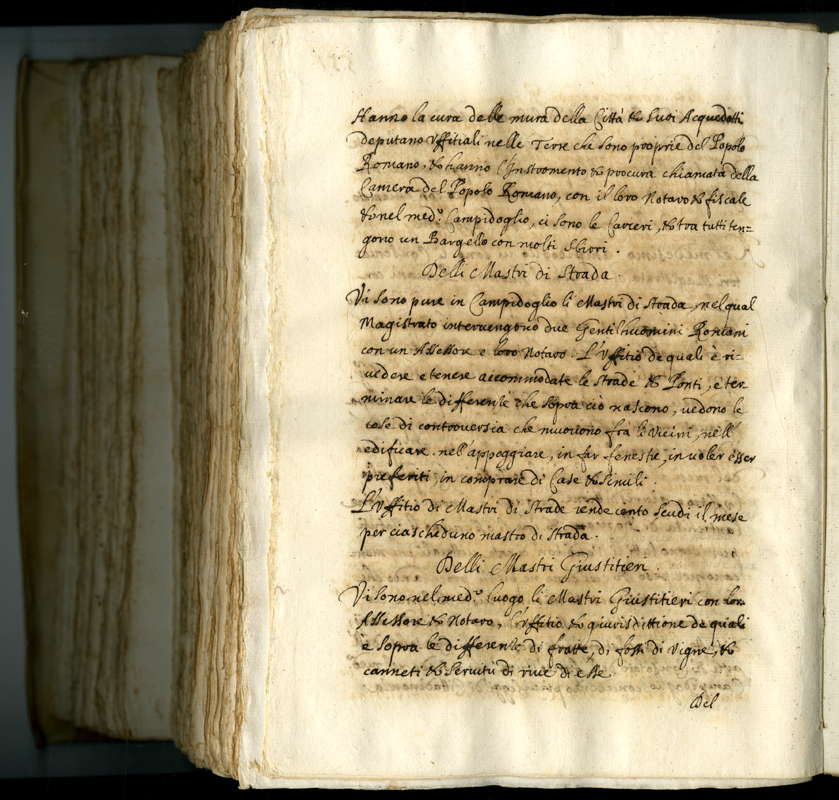 Hanno la cura delle mura della Città & suoi Acquedotti
deputano Vffitiali nelle Terre che sono proprie del Popolo
Romano, & hanno l'Instromento & procura chiamata della
Camera del Popolo Romano, con il loro Notaro & fiscale
& nel med.º Campidoglio, ci sono le Carceri, & tra tutti ten=
gono un Bargello con molti Sbirri.
Delli Mastri di Strada.
Vi sono pure in Campidoglio li Mastri di Strada, nel qual
Magistrato intervengono due Gentilhuomini Romani
con un Assessore e loro Notaro. L'Vffitio de quali è ri=
vedere e tenere accommodate le strade & Ponti, e ter
minare le differenze che sopra ciò nascono, vedono le
cose di controversia che nuovono frà li Vicini, nell'
edificare, nell'appoggiare, in far fenestre, in voler esser
preferiti, in comprare di Case & simili.
L'Vffitio di Mastri di Strade rende cento scudi il mese
per ciascheduno mastro di Strada.
Delli Mastri Giustitieri.
Vi sono nel med.º luogo li Mastri Giustitieri con lor
Assessore & Notaro, l'Vffitio & giurisdittione de quali
è sopra le differenze di fratte, di fossi di Vigne, &
canneti & servitù di rive di esse
Del